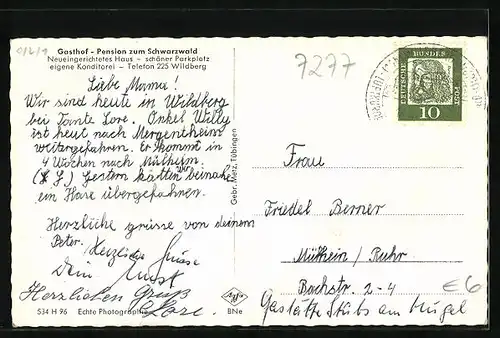 Gasthof - Pension zum Schwarzwald
Neueingerichtetes Haus - schöner Parkplatz
eigene Konditorei - Telefon 225 Wildberg
Liebe Mama!
Wir sind heute in Wildberg
bei Tante Lore. Onkel Willy
ist heut nach Mergentheim
weitergefahren. Er kommt in
4 Wochen nach Mülheim.
Gestern hätten wir beinahe
ein Hase übergefahren.
Herzliche grüsse von deinem
Peter.
Herzliche Grüsse
Dein
Herzlichen Gruß
Lore.
534 H 96 Echte Photographie
Gebr. Metz, Tübingen
Agfa
BNe
7277
DEUTSCHE
BUNDES
POST
10
Frau
Friedel Berner
Mülheim/Ruhr
Bachstr. 2-4
Gastätte am Hügel
€6